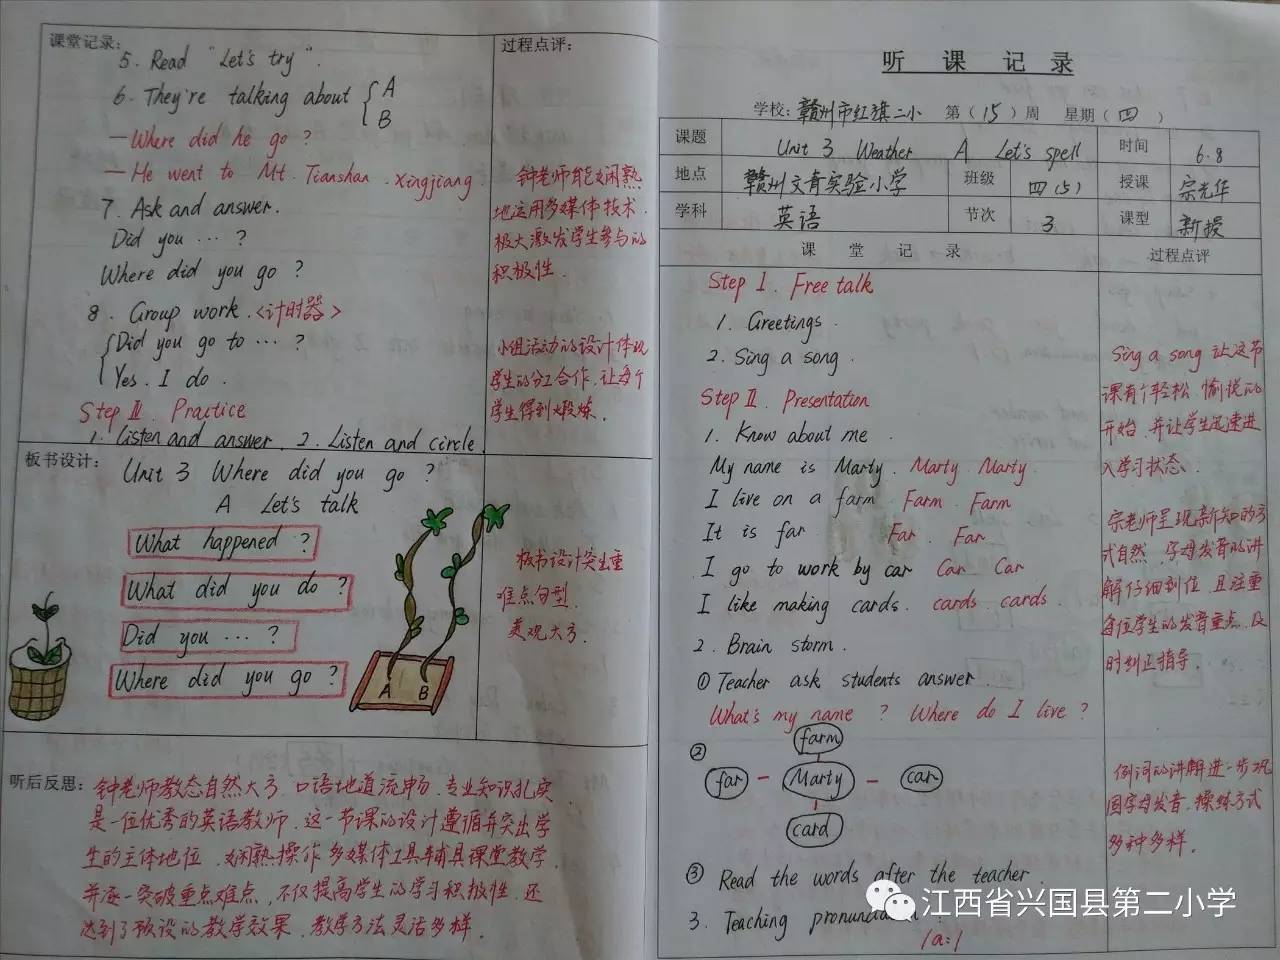 课堂记录:
5. Read "Let's try".
6. They're talking about { A
B
—Where did he go?
—He went to Mt. Tianshan. Xingjiang
7. Ask and answer.
Did you … ?
Where did you go ?
8. Group work. <计时器>
Did you go to … ?
Yes. I do.
Step Ⅲ. Practice
1. Listen and answer. 2. Listen and circle.
过程点评:
钟老师能娴熟
地运用多媒体技术.
极大激发学生参与的
积极性.
小组活动的设计体现
学生的分工合作.让每个
学生得到锻炼.
板书设计:
Unit 3 Where did you go ?
A Let's talk
What happened ?
What did you do ?
Did you … ?
Where did you go ?
A B
板书设计突出重
难点句型.
美观大方.
听后反思:
钟老师教态自然大方.口语地道流畅.专业知识扎实
是一位优秀的英语教师.这一节课的设计遵循并突出学
生的主体地位.娴熟操作多媒体工具辅具课堂教学.
并逐一突破重点难点,不仅提高学生的学习积极性.还
达到了预设的教学效果.教学方法灵活多样.
听 课 记 录
学校: 赣州市红旗二小 第(15)周 星期(四)
课题 Unit 3 Weather A Let's spell 时间 6.8
地点 赣州文清实验小学 班级 四(5) 授课 宗光华
学科 英语 节次 3 课型 新授
课 堂 记 录 过程点评
Step Ⅰ. Free talk
1. Greetings.
2. Sing a song.
Step Ⅱ. Presentation
1. Know about me.
My name is Marty. Marty. Marty.
I live on a farm. Farm. Farm
It is far Far. Far.
I go to work by car Car Car
I like making cards. cards. cards.
2. Brain storm.
① Teacher ask students answer.
What's my name ? Where do I live ?
②
farm
far — Marty — car
card
③ Read the words after the teacher.
3. Teaching pronunciation
/a:/
Sing a song 让这节
课有个轻松.愉悦的
开始.并让学生迅速进
入学习状态.
宗老师呈现新知的方
式自然.字母发音的讲
解仔细到位.且注重
每位学生的发音重点.及
时纠正指导.
例词的讲解进一步巩
固字母发音.操练方式
多种多样.
江西省兴国县第二小学